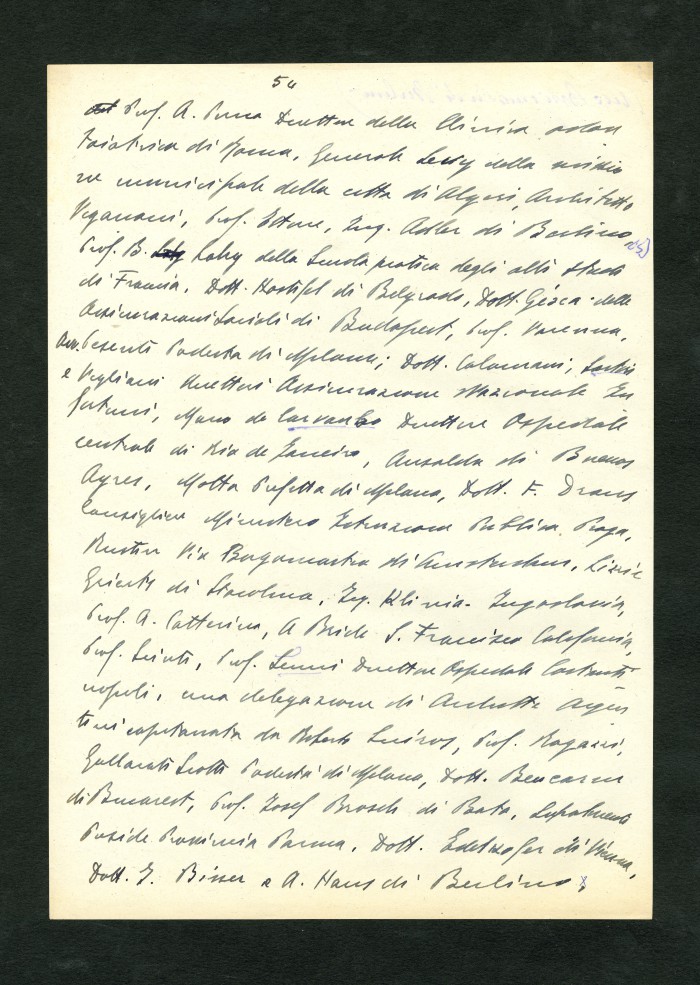 54
Prof. A. Perna Direttore della Clinica odon
toiatrica di Roma, Generale della
municipale della città di Algeri, Architetto
Viganoni, Prof. Ettore, Ing. Adler di Berlino
Prof. B. Lahy della Scuola pratica degli alti studi
di Francia, Dott. di Belgrado, Dott. Géza delle
Assicurazioni Sociali di Budapest, Prof. Varenna,
Avv. Pesenti Podestà di Milano; Dott. Calamani;
e Vigliani direttori Assicurazione Nazionale In
fortuni, Mario de Carvanbo Direttore Ospedale
centrale di Rio de Janeiro, Ansaldo di Buenos
Ayres, Motta Prefetto di Milano, Dott. F. Drans
Consigliere Ministero Istruzione Pubblica Praga,
Vice Borgomastro di Amsterdam,
di Stocolma, Ing. Klinia Jugoslavia,
Prof. A. Catterina, A Bride S. Francisco California,
Prof. Sciuti, Prof. Senni Direttore Ospedale Costanti
nopoli, una delegazione di Architetti Argen
tini capitanata da Roberto Quiros, Prof. Ragazzi,
Gallarati Scotti Podestà di Milano, Dott.
di Bucarest, Prof. Josef Brosch di Bata,
Preside Provincia Parma, Dott. Edelhofer di Vienna,
Dott. J. Bisser e A. Hans di Berlino,